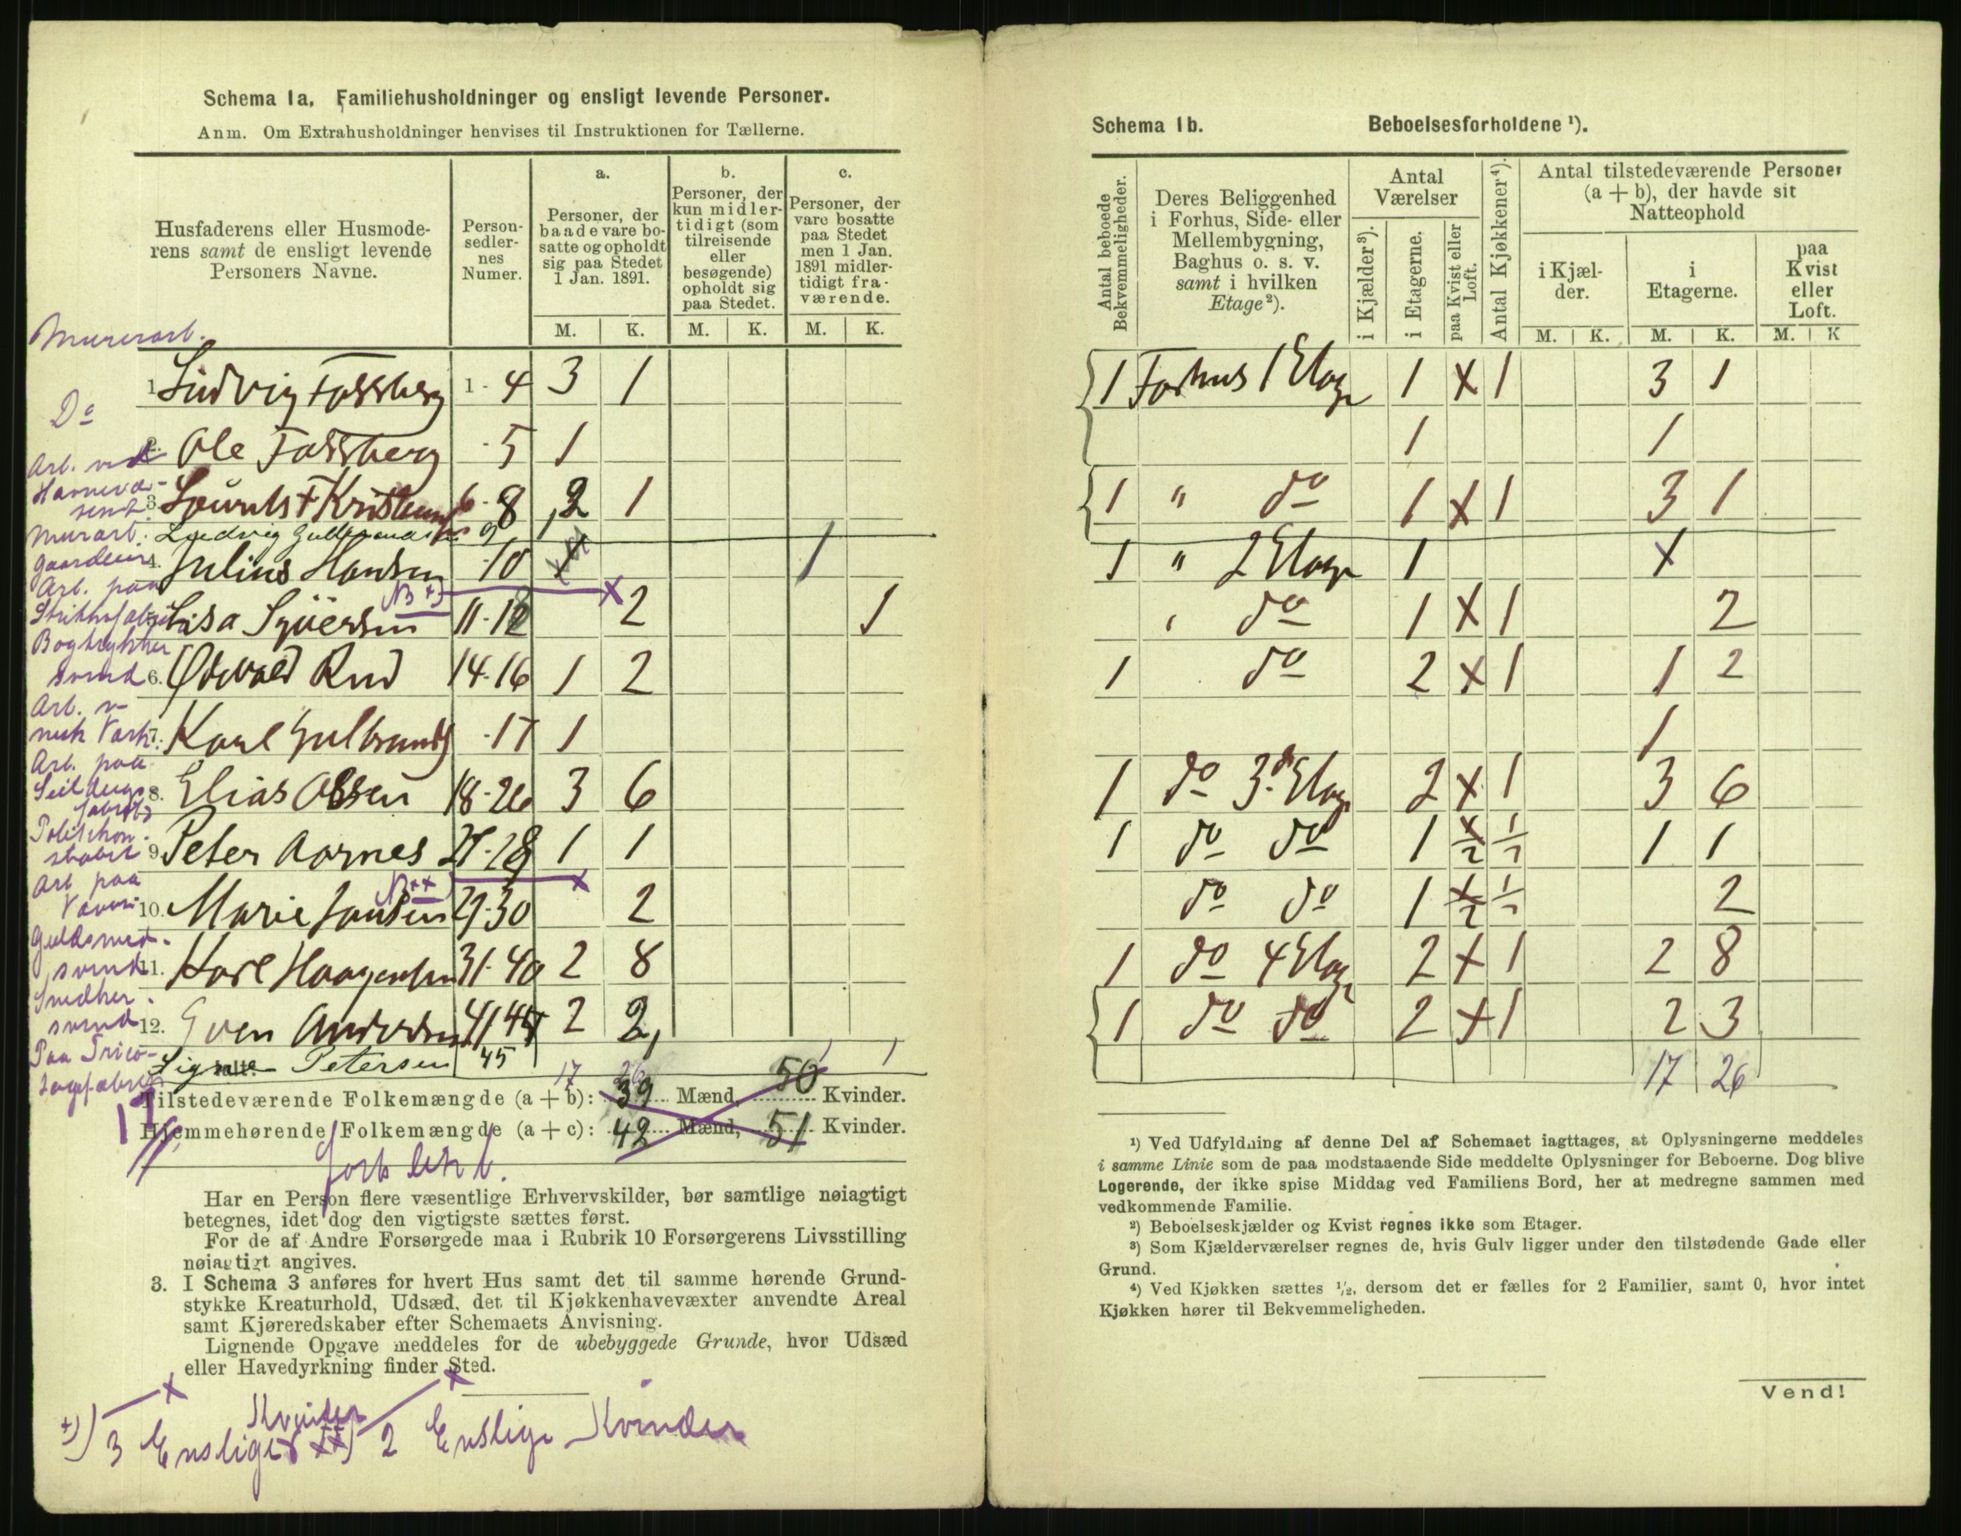 Schema 1a. Familiehusholdninger og ensligt levende Personer.
Anm. Om Extrahusholdninger henvises til Instruktionen for Tællerne.
Husfaderens eller Husmode-
rens samt de ensligt levende
Personers Navne.
Person-
sedler-
nes
Numer.
a.
Personer, der
baade vare bo-
satte og opholdt
sig paa Stedet
1 Jan. 1891.
b.
Personer, der
kun midler-
tidigt (som
tilreisende
eller
besøgende)
opholdt sig
paa Stedet.
c.
Personer, der
vare bosatte
paa Stedet
men 1 Jan.
1891 midler-
tidigt fra-
værende.
M. K. M. K. M. K.
Murerarb.
1. Ludvig Fossberg 1-4 3 1
Do
2. Ole Fossberg -5 1
Arb. ved
Havnevæ-
senet
3. 6-8 2 1
Murarb. Ludvig 9
4. Julius Hansen -10 1
Arb. paa
Lisa Syversen 11-12 2 1
Bogtrykker
svend 6. Odvald Rud 14-16 1 2
Arb. v
mek Værk. 7. Karl Gulbrands -17 1
Arb. paa
Seildugs
fabrik
8. Elias Olsen 18-26 3 6
Politikon-
stabel 9. Peter Aarnes 27-28 1 1
Arb paa
Væveri 10. Marie Jansen 29-30 2
Guldsmed-
svend 11. Karl Haagensen 31-40 2 8
Snedker-
svend 12. Sven Andersen 41-45 2 2
Paa Trico-
tagefabrik Signe Petersen 45 1 1
17 26
Tilstedeværende Folkemængde (a + b): 39 Mænd, 50 Kvinder.
Hjemmehørende Folkemængde (a + c): 42 Mænd, 51 Kvinder.
Har en Person flere væsentlige Erhvervskilder, bør samtlige nøiagtigt
betegnes, idet dog den vigtigste sættes først.
For de af Andre Forsørgede maa i Rubrik 10 Forsørgerens Livsstilling
nøiagtigt angives.
3. I Schema 3 anføres for hvert Hus samt det til samme hørende Grund-
stykke Kreaturhold, Udsæd, det til Kjøkkenhavevæxter anvendte Areal
samt Kjøreredskaber efter Schemaets Anvisning.
Lignende Opgave meddeles for de ubebyggede Grunde, hvor Udsæd
eller Havedyrkning finder Sted.
+) 3 Enslige Kvinder ++) 2 Enslige Kvinder
Schema 1b. Beboelsesforholdene ¹).
Antal beboede
Bekvemmeligheder.
Deres Beliggenhed
i Forhus, Side- eller
Mellembygning,
Baghus o. s. v.
samt i hvilken
Etage²).
Antal
Værelser
i Kjælder³).
i Etagerne.
paa Kvist eller
Loft.
Antal Kjøkkener⁴).
Antal tilstedeværende Personer
(a + b), der havde sit
Natteophold
i Kjæl-
der.
i
Etagerne.
paa
Kvist
eller
Loft.
M. K. M. K. M. K
1 Forhus 1 Etage 1 x 1 3 1
1 1
1 " do 1 x 1 3 1
1 " 2 Etage 1 x
" do 1 x 1 2
1 do 2 x 1 1 2
1
1 do 3d Etage 2 x 1 3 6
1 do do 1 x/2 1/2 1 1
do do 1 x/2 1/2 2
1 do 4 Etage 2 x 1 2 8
1 do do 2 x 1 2 3
17 26
¹) Ved Udfyldning af denne Del af Schemaet iagttages, at Oplysningerne meddeles
i samme Linie som de paa modstaaende Side meddelte Oplysninger for Beboerne. Dog blive
Logerende, der ikke spise Middag ved Familiens Bord, her at medregne sammen med
vedkommende Familie.
²) Beboelseskjælder og Kvist regnes ikke som Etager.
³) Som Kjælderværelser regnes de, hvis Gulv ligger under den tilstødende Gade eller
Grund.
⁴) Ved Kjøkken sættes ½, dersom det er fælles for 2 Familier, samt 0, hvor intet
Kjøkken hører til Bekvemmeligheden.
Vend!